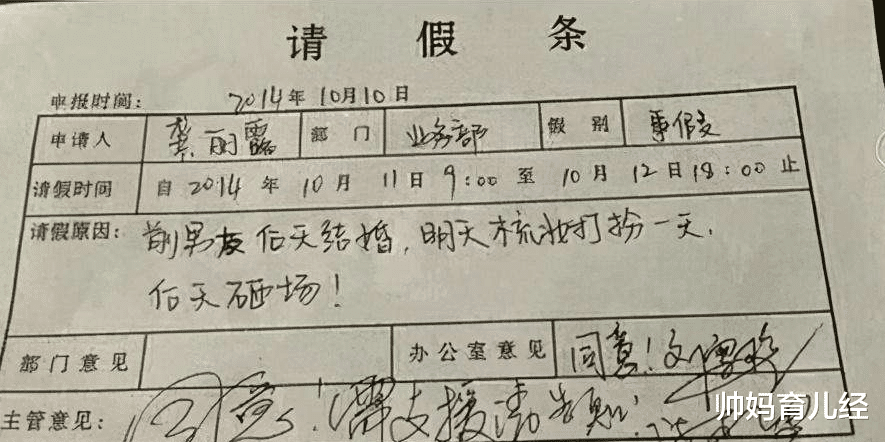 请假条
申报时间: 2014年10月10日
申请人 龚丽露 部门 业务部 假别 事假
请假时间 自2014年10月11日9:00至10月12日18:00止
请假原因: 前男友后天结婚,明天梳妆打扮一天,
后天砸场!
部门意见 办公室意见 同意!
主管意见: 同意!需支援请
帅妈育儿经